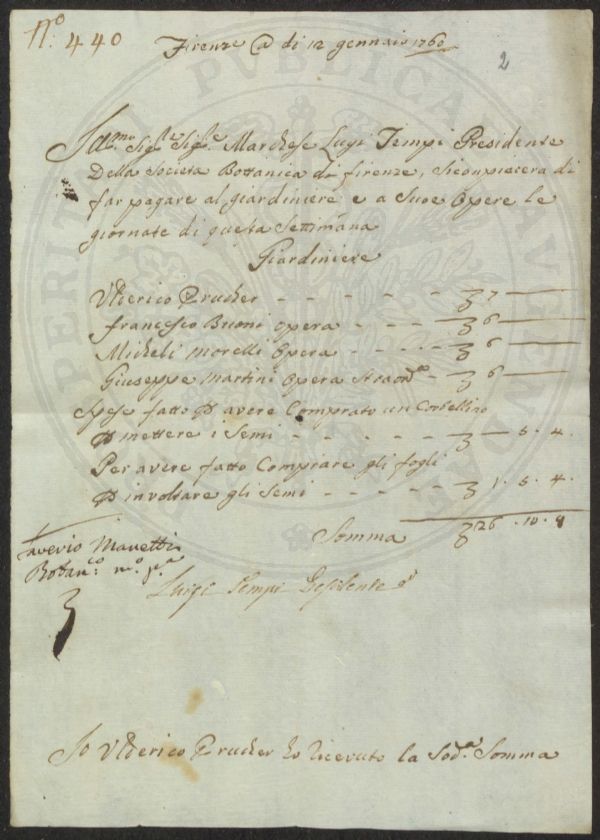 N.º 440
Firenze @ di 12 gennaio 1760
2
Ill.mo Sig.re Sig.re Marchese Luigi Tempi Presidente
Della Società Bottanica di firenze, si compiacera di
far pagare al giardiniere e a Suoe Opere le
giornate di questa Settimana
Giardiniere
Ulderico Prucher - - - - - 7
francesco Bruoni opera - - - - 6
Micheli Morelli Opera - - - - 6
Giuseppe Martini Opera Straord.º - 6
Spese fatto P avere Comprato un Corbellino
P mettere i Semi - - - - - 5. 4.
Per avere fatto Comprare gli fogli
P involtare gli Semi - - - - - 1. 5. 4.
Somma 26. 10. 8
Saverio Manetti
Botan.co m.º p.a
Luigi Tempi Presidente
Io Ulderico Prucher ho ricevuto la Sod.a Somma
PERITURA PUBLICAE AUGENDAE